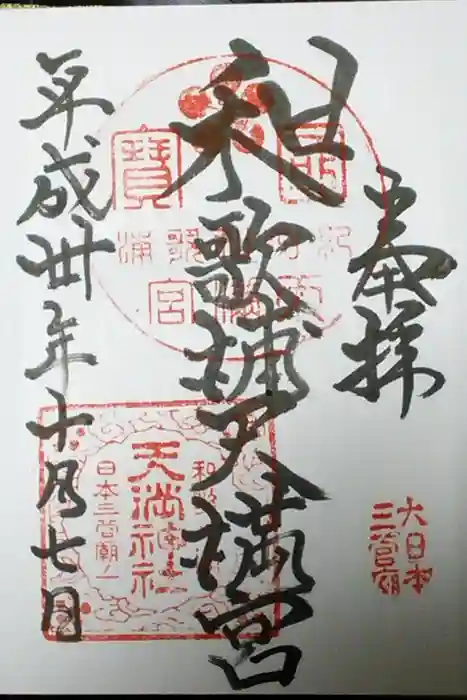 奉拝
和歌浦天満宮
平成卅年十月七日
大日本
三菅廟
天満神社
日本三菅廟ノ一